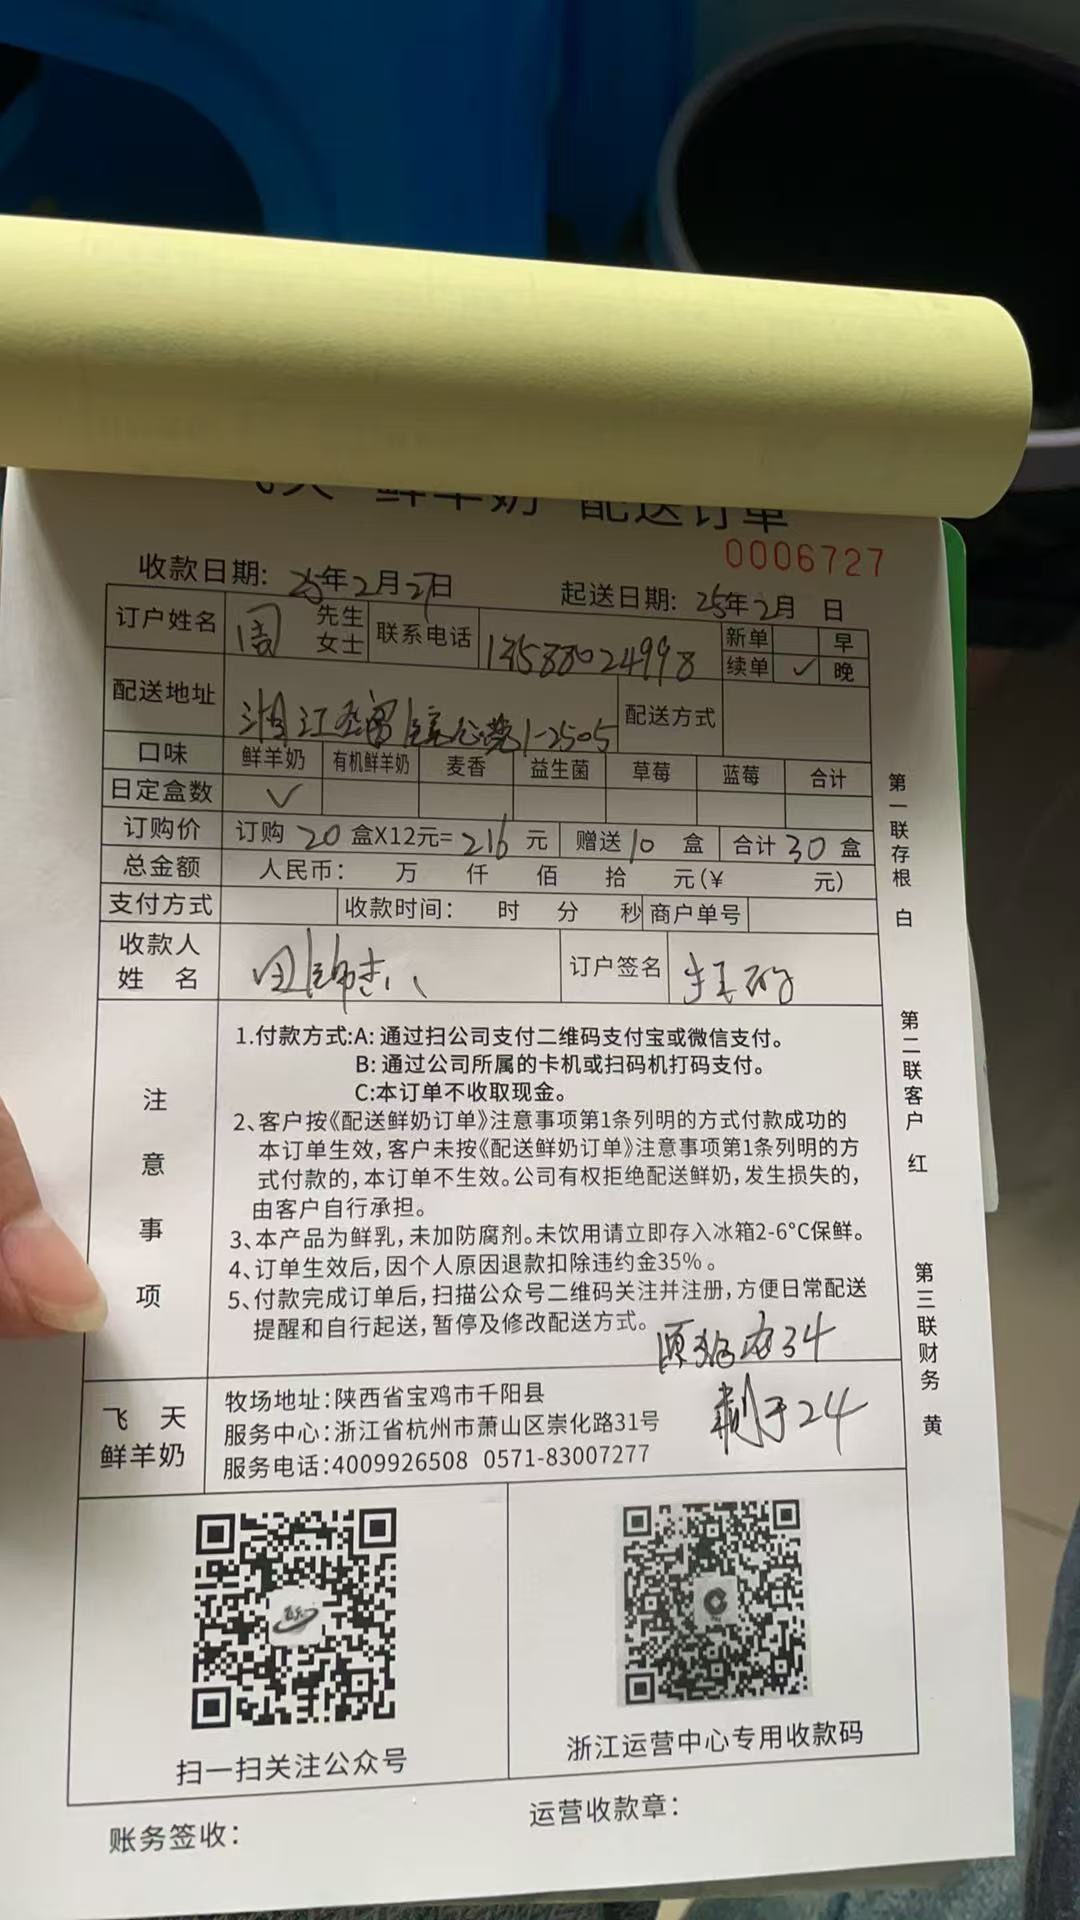 飞天 鲜羊奶 配送订单
0006727
收款日期: 25年2月27日 起送日期: 25年2月 日
订户姓名 周 先生 女士 联系电话 13588024998 新单 早
续单 ✓ 晚
配送地址 1-2505 配送方式
口味 鲜羊奶 有机鲜羊奶 麦香 益生菌 草莓 蓝莓 合计
日定盒数 ✓
订购价 订购 20 盒X12元= 216 元 赠送 10 盒 合计 30 盒
总金额 人民币: 万 仟 佰 拾 元(¥ 元)
支付方式 收款时间: 时 分 秒 商户单号
收款人
姓 名 订户签名
注意事项
1.付款方式:A: 通过扫公司支付二维码支付宝或微信支付。
B: 通过公司所属的卡机或扫码机打码支付。
C:本订单不收取现金。
2、客户按《配送鲜奶订单》注意事项第1条列明的方式付款成功的
本订单生效, 客户未按《配送鲜奶订单》注意事项第1条列明的方
式付款的, 本订单不生效。公司有权拒绝配送鲜奶, 发生损失的,
由客户自行承担。
3、本产品为鲜乳, 未加防腐剂。未饮用请立即存入冰箱2-6°C保鲜。
4、订单生效后, 因个人原因退款扣除违约金35%。
5、付款完成订单后, 扫描公众号二维码关注并注册, 方便日常配送
提醒和自行起送, 暂停及修改配送方式。
34
剩于24
飞 天
鲜羊奶
牧场地址: 陕西省宝鸡市千阳县
服务中心: 浙江省杭州市萧山区崇化路31号
服务电话: 4009926508 0571-83007277
扫一扫关注公众号
浙江运营中心专用收款码
账务签收:
运营收款章:
第一联存根 白
第二联客户 红
第三联财务 黄